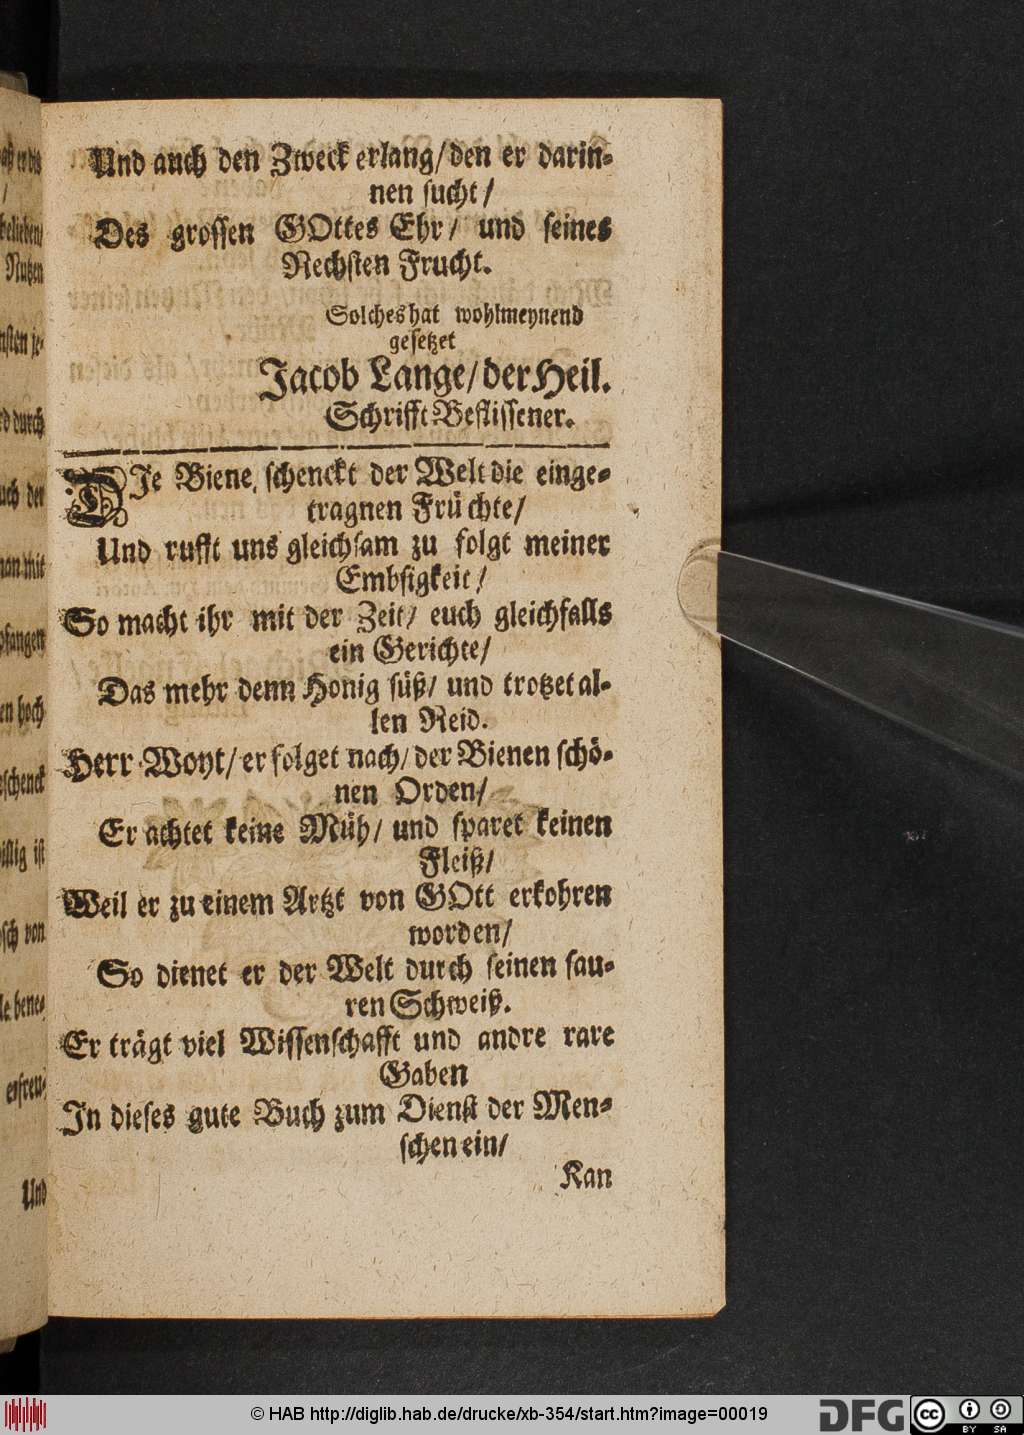 Und auch den Zweck erlang/ den er darin-
nen sucht/
Des grossen GOttes Ehr/ und seines
Nechsten Frucht.
Solches hat wohlmeynend
gesetzet
Jacob Lange/ der Heil.
Schrifft Beflissener.
DIe Biene, schenckt der Welt die einge-
tragnen Früchte/
Und rufft uns gleichsam zu folgt meiner
Embsigkeit/
So macht ihr mit der Zeit/ euch gleichfalls
ein Gerichte/
Das mehr denn Honig süß/ und trotzet al-
len Neid.
Herr Woyt/ er folget nach/ der Bienen schö-
nen Orden/
Er achtet keine Müh/ und sparet keinen
Fleiß/
Weil er zu einem Artzt von GOtt erkohren
worden/
So dienet er der Welt durch seinen sau-
ren Schweiß.
Er trägt viel Wissenschafft und andre rare
Gaben
In dieses gute Buch zum Dienst der Men-
schen ein/
Kan
belieben/
Nutzen
durch
der
mit
hoch
ist
von
Und
© HAB http://diglib.hab.de/drucke/xb-354/start.htm?image=00019
DFG
cc
BY SA